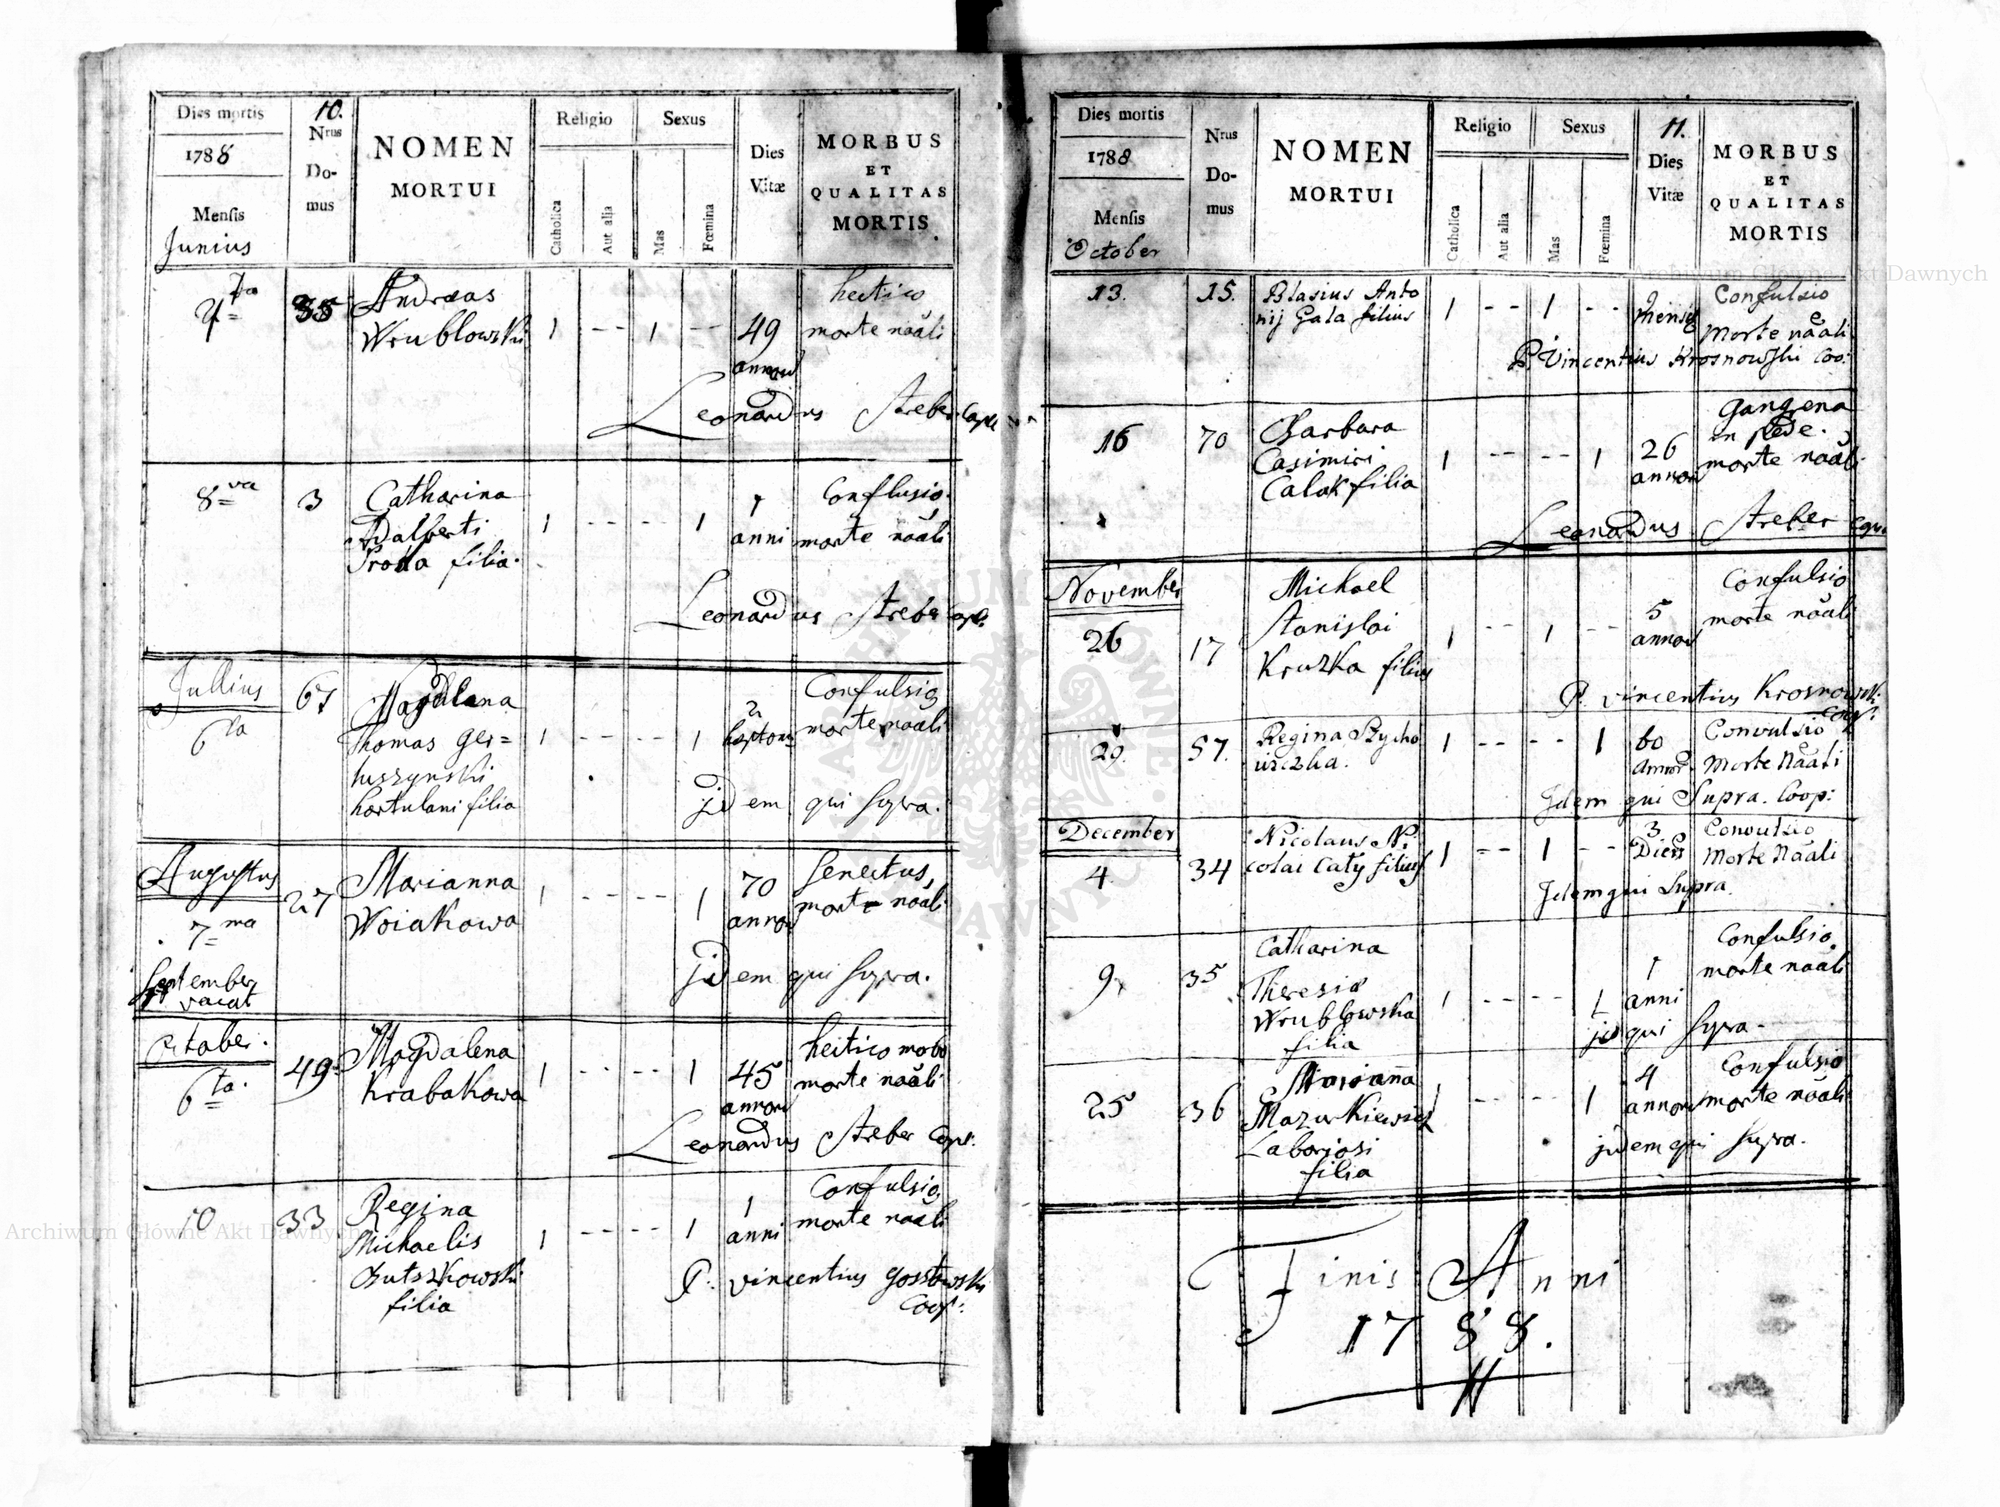 Dies mortis
1788
Mensis
Junius
10.
Nrus
Do-
mus
NOMEN
MORTUI
Religio
Catholica
Aut alia
Sexus
Mas
Fœmina
Dies
Vitæ
MORBUS
ET
QUALITAS
MORTIS
35
Andreas
Wrublowski
1 -- 1 --
49
hectico
morte nãali
Leonardus Streber
8va
3
Catharina
Adalberti
filia.
1 -- -- 1
1
anni
Conflusio
morte nãali
Leonardus Streber
Jullius
6ta
67
Magdalena
Thomas Ger=
luszynski
hortulani filia
1 -- -- 1
2
Confulsio
morte naali
jdem qui supra.
Augustus
7ma
27
Marianna
Woiakowa
1 -- -- 1
70
Senectus,
morte nãali
jdem qui supra.
September
vacat
October.
6ta.
49
Magdalena
Krabakowa
1 -- -- 1
45
hectico morbo
morte nãali
Leonardus Streber
10
33
Regina
Michaelis
Butszkowski
filia
1 -- -- 1
1
anni
Confulsio
morte nãali
P. Vincentius
Coop:
Dies mortis
1788
Mensis
October
Nrus
Do-
mus
NOMEN
MORTUI
Religio
Catholica
Aut alia
Sexus
Mas
Fœmina
11.
Dies
Vitæ
MORBUS
ET
QUALITAS
MORTIS
13.
15.
Blasius Anto
nij Gala filius
1 -- 1 --
Confulsio
Morte nãali
P. Vincentius Krosnowski Coo:
16
70
Barbara
Casimiri
Calak filia
1 -- -- 1
26
Gangrena
in pede.
morte nãali
Leonardus Streber
November
26
17
Michael
Stanislai
Kruzka filius
1 -- 1 --
5
Confulsio
morte nãali
P. Vincentius Krosnowski
Coop:
29.
57.
Regina
1 -- -- 1
60
Convulsio
Morte Nãali
Jdem qui Supra. Coop:
December
4.
34
Nicolaus Ni
colai Caty filius
1 -- 1 --
3
Dies
Convulsio
Morte Nãali
Jdem qui Supra.
9
35
Catharina
Theresia
Wrublowska
filia
1 -- -- 1
1
anni
Confulsio
morte naali
jd qui supra.
25
36
Marianna
Mazurkiewicz
Laboriosi
filia
1 -- -- 1
4
Confulsio
morte nãali
jdem qui supra.
Finis Anni
1788.
Archiwum Główne Akt Dawnych
Archiwum Główne Akt Dawnych
ARCHIWUM GŁÓWNE AKT DAWNYCH